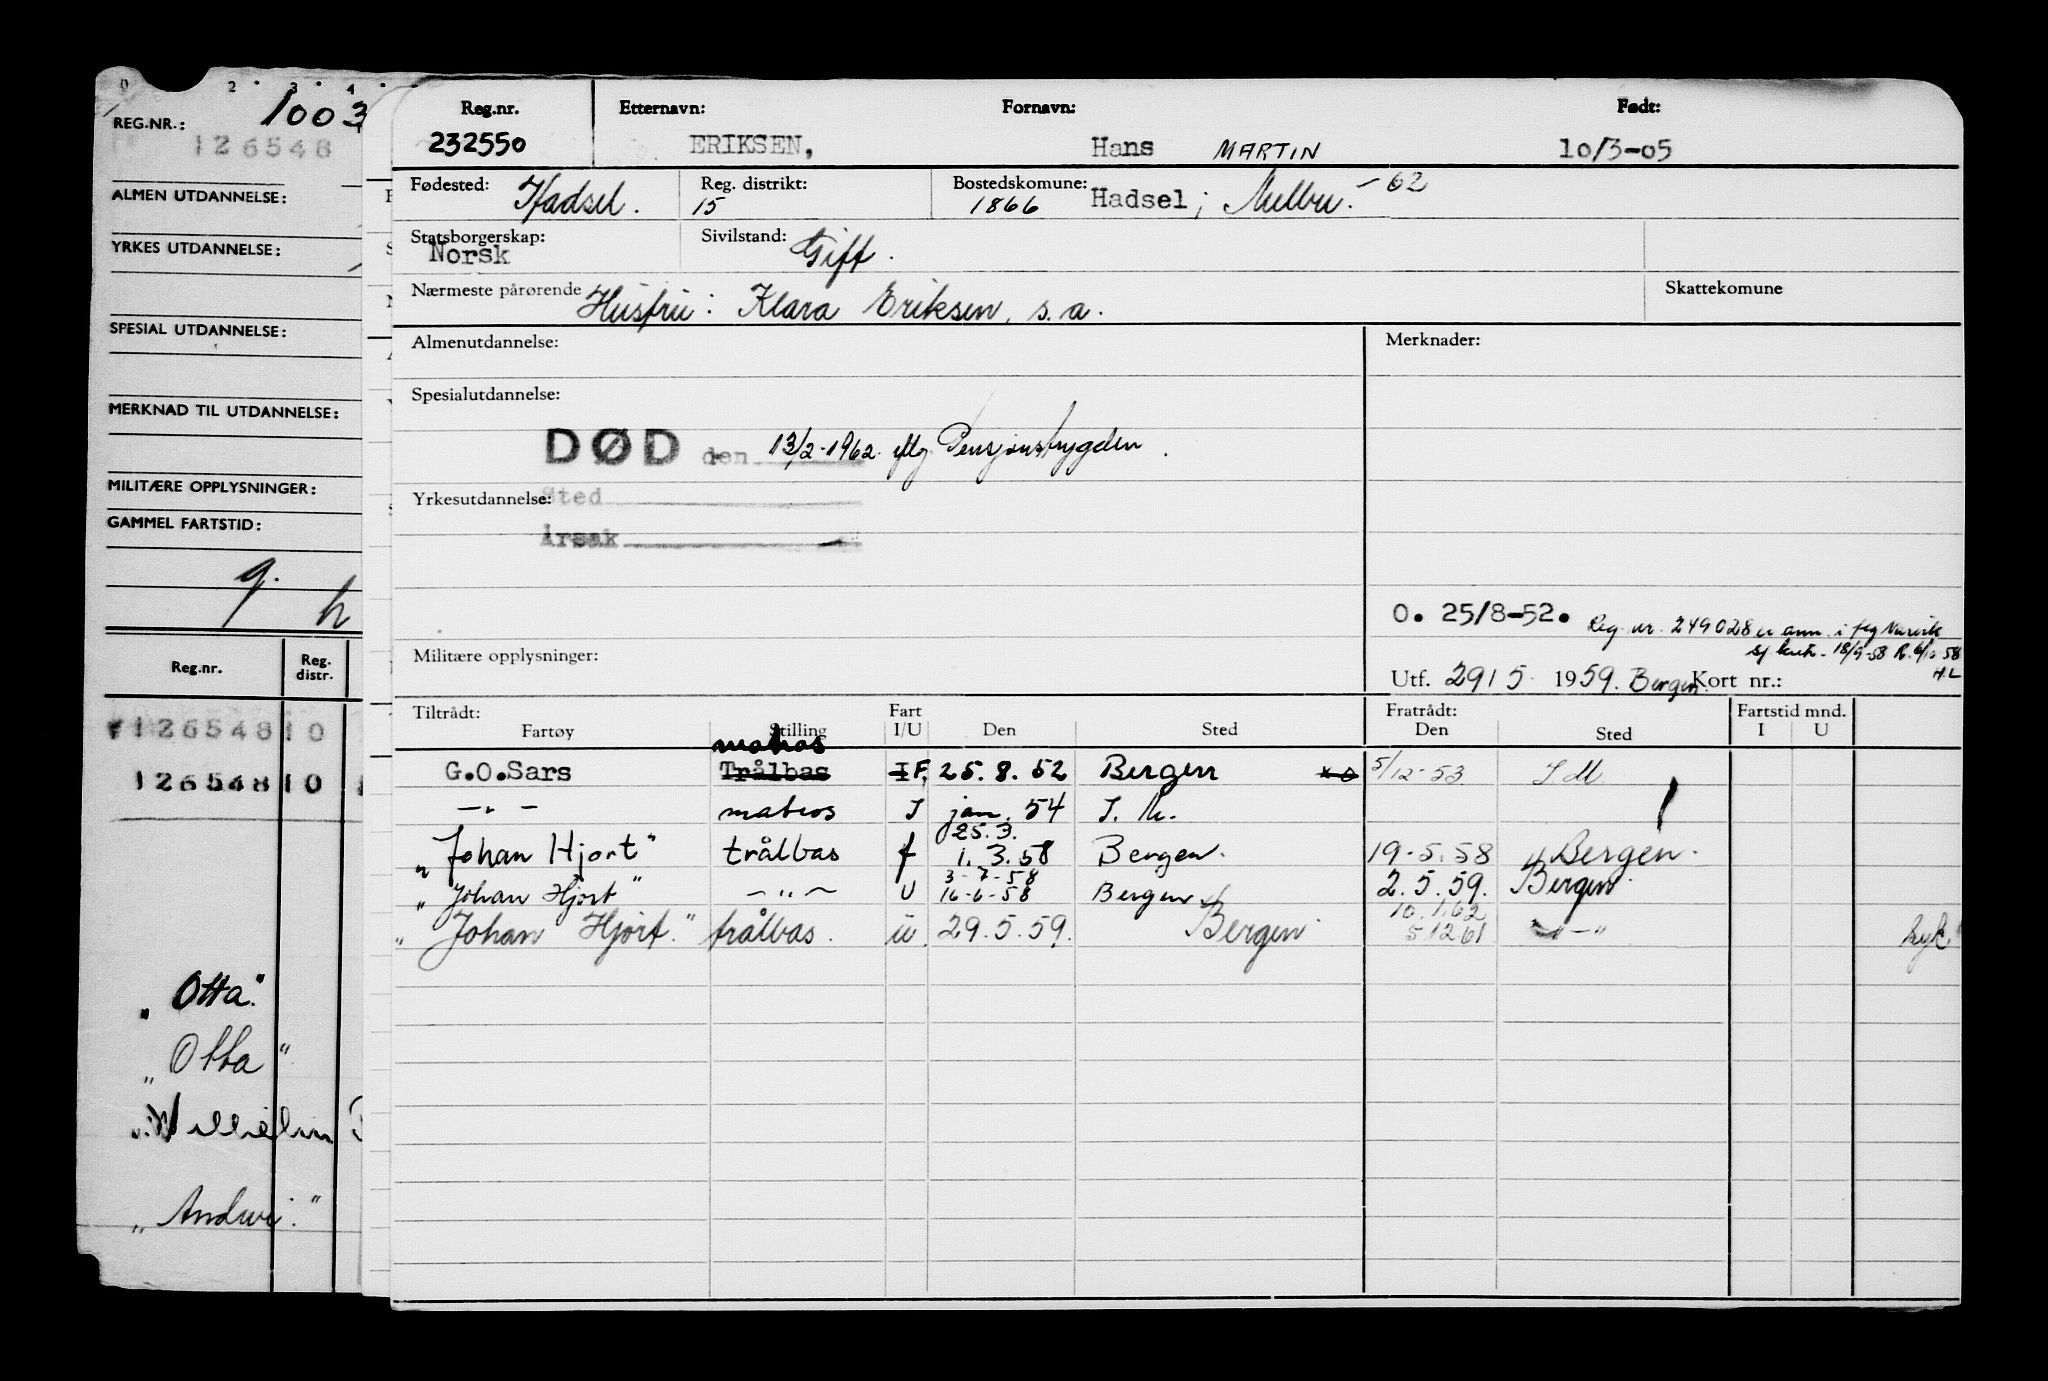 0 2 3 4
1003
REG.NR.:
126548
ALMEN UTDANNELSE:
YRKES UTDANNELSE:
SPESIAL UTDANNELSE:
MERKNAD TIL UTDANNELSE:
MILITÆRE OPPLYSNINGER:
GAMMEL FARTSTID:
Reg.nr. Reg. distr.
126548 10
126548 10
„Otta"
„Otta"
„Andwi."
Reg.nr. Etternavn: Fornavn: Født:
232550 ERIKSEN, Hans MARTIN 10/3-05
Fødested: Hadsel. Reg. distrikt: 15 Bostedskomune: 1866 Hadsel; Melbu. -62
Statsborgerskap: Norsk Sivilstand: Gift.
Nærmeste pårørende Hustru: Klara Eriksen, s.a. Skattekomune
Almenutdannelse: Merknader:
Spesialutdannelse:
DØD den 13/2-1962. iflg. Pensjonstrygden.
Yrkesutdannelse: Sted
Årsak
O. 25/8-52. Reg. nr. 249028 er ann. i flg Narvik
sj.kontr. 18/9-58 R. 6/10 58
H.L
Militære opplysninger:
Utf. 29/5 1959. Bergen Kort nr.:
Tiltrådt: Fart Fratrådt: Fartstid mnd.
Fartøy Stilling I/U Den Sted Den Sted I U
matros
G.O.Sars Trålbas I F. 25.8.52 Bergen 5/12-53 I.M.
-"- matros I jan. 54 I. M.
25.3.
"Johan Hjort" trålbas f 1.3.58 Bergen. 19-5.58 Bergen.
3-7-58
"Johan Hjort" -"- U 16-6-58 Bergen 2.5.59. Bergen.
10.1.62
"Johan Hjort." trålbas. u. 29.5.59. Bergen 5.12.61 -"- syk.